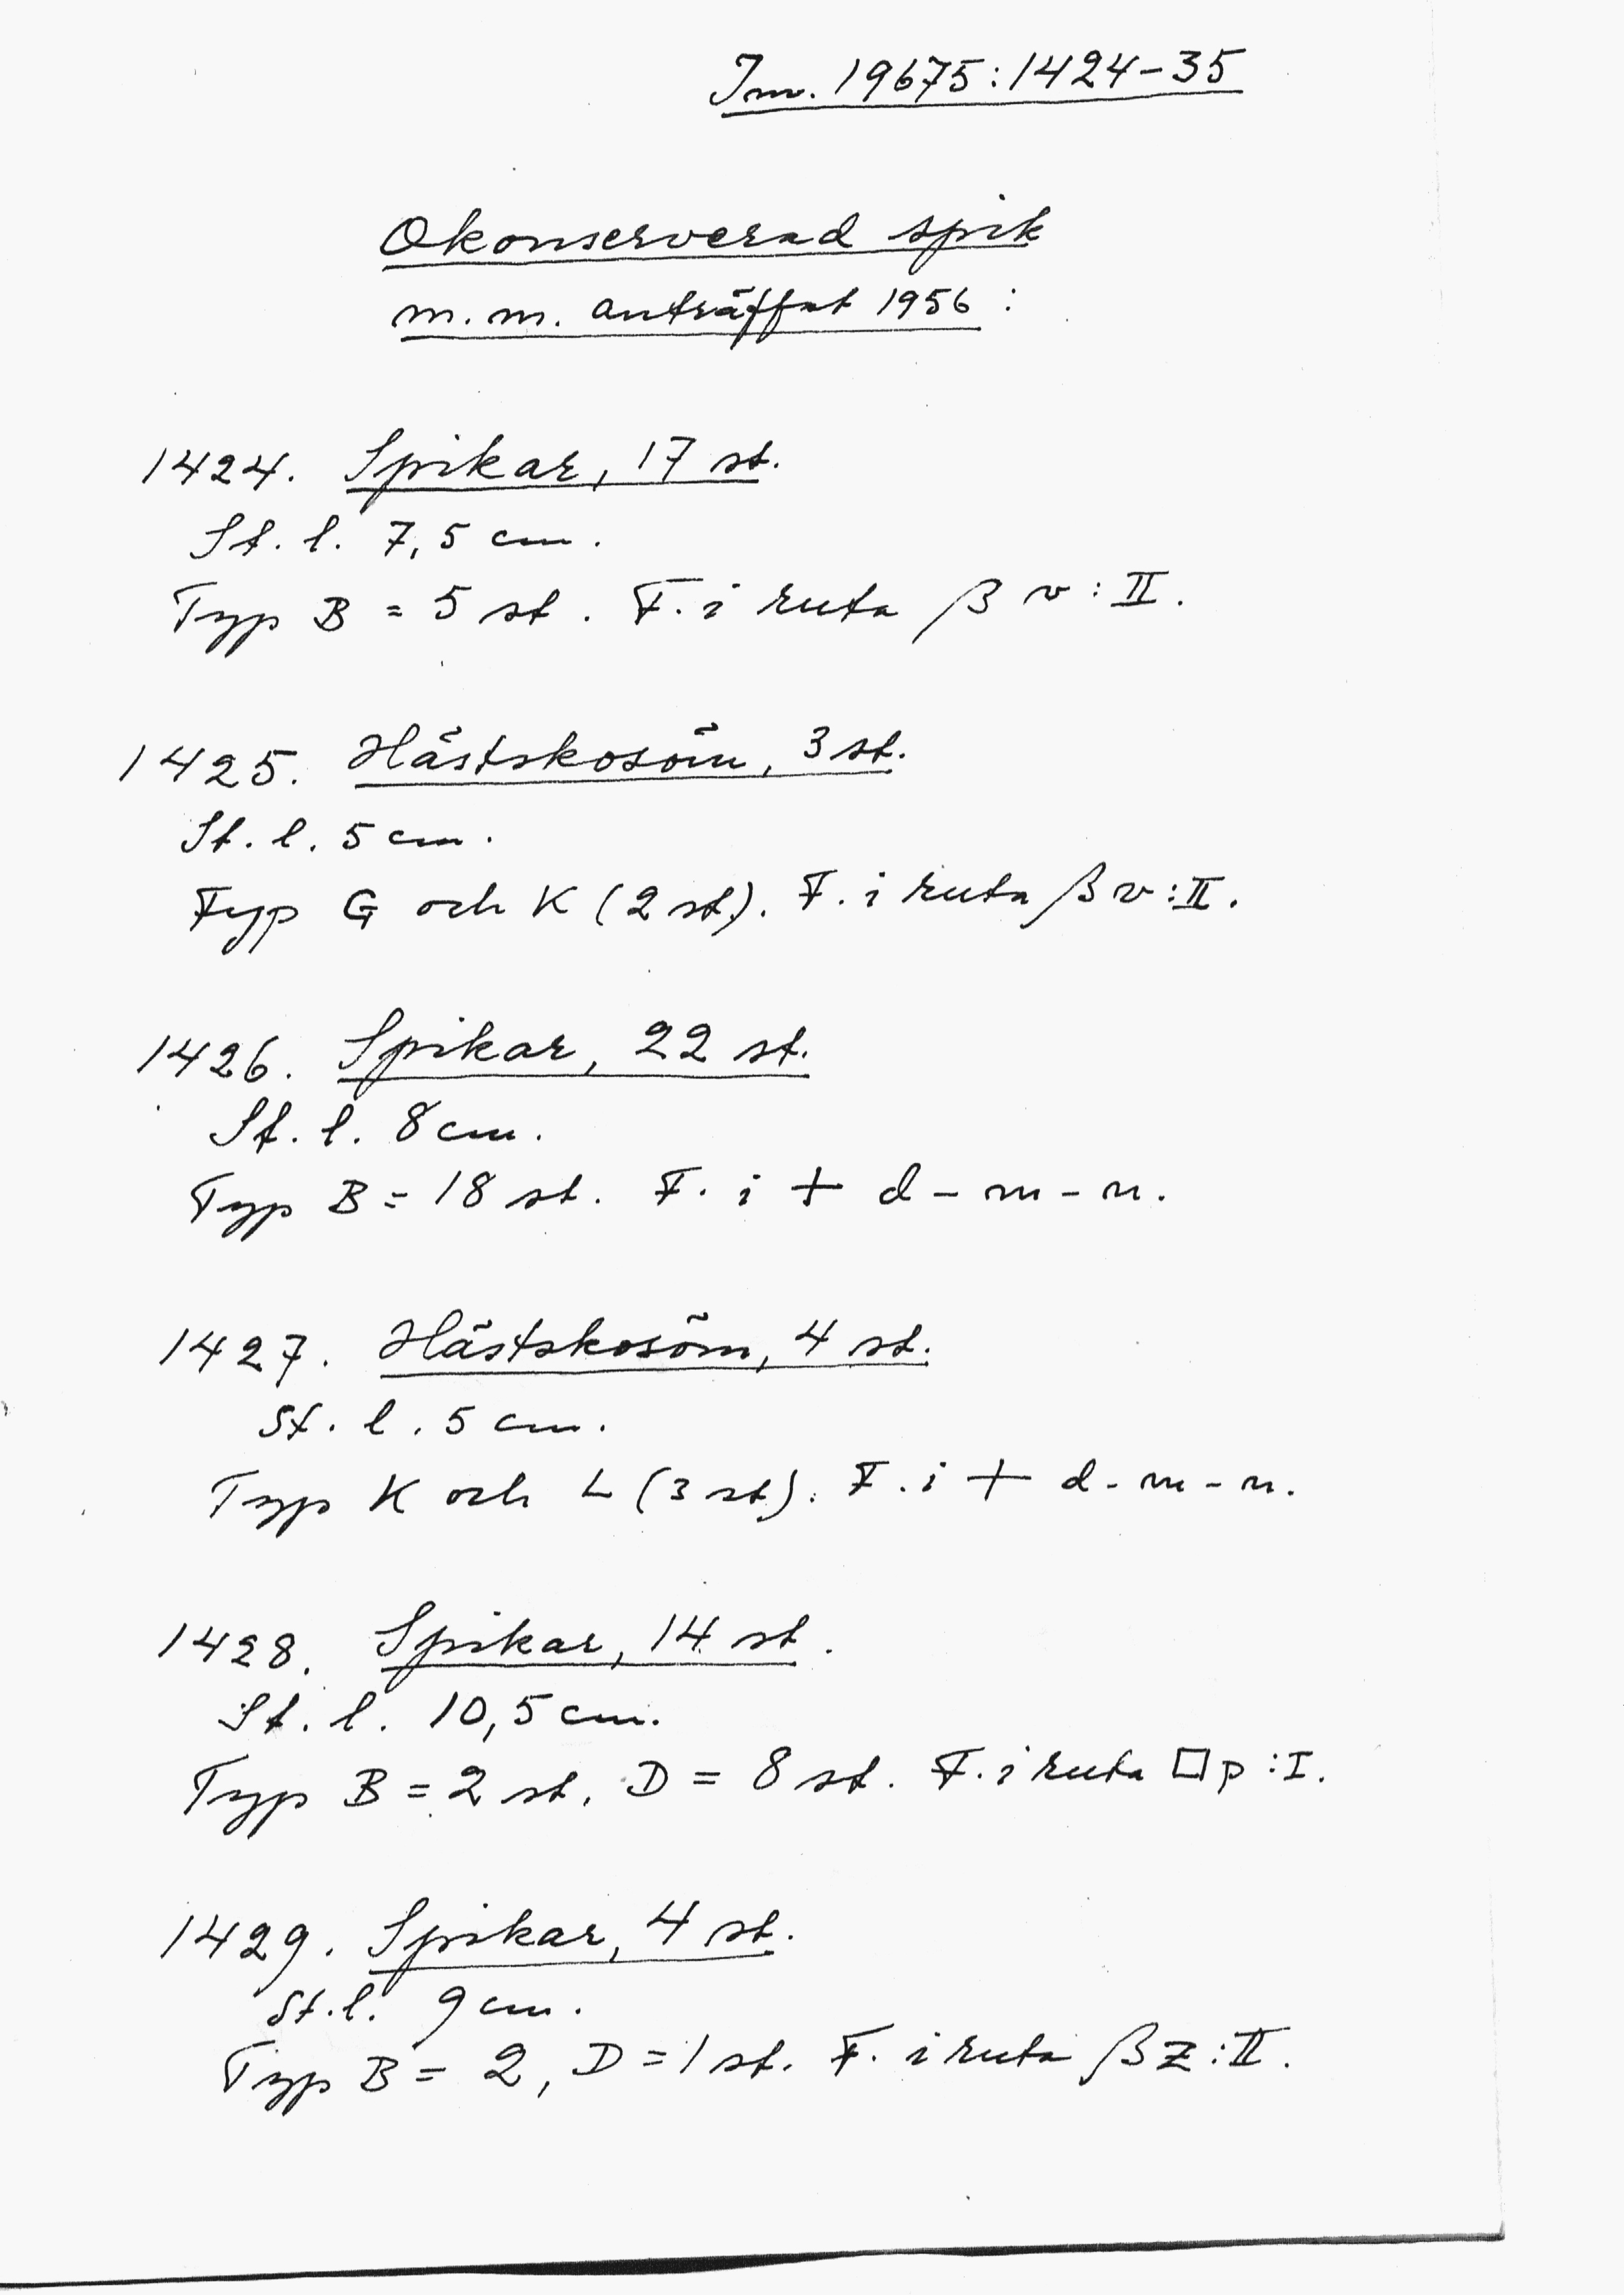 Inv. 19675:1424-35
Okonserverad spik
m.m. anträffat 1956:
1424. Spikar, 17 st.
St. l. 7,5 cm.
Typ B = 5 st. F. i ruta β v:II.
1425. Hästskosöm, 3 st.
St. l. 5 cm.
Typ G och K (2 st). F. i ruta β v:II.
1426. Spikar, 22 st.
St. l. 8 cm.
Typ B = 18 st. F. i + d-m-n.
1427. Hästskosöm, 4 st.
St. l. 5 cm.
Typ K och L (3 st). F. i + d-m-n.
1428. Spikar, 14 st.
St. l. 10,5 cm.
Typ B = 2 st, D = 8 st. F. i ruta □ p:I.
1429. Spikar, 4 st.
St. l. 9 cm.
Typ B = 2, D = 1 st. F. i ruta β z:II.